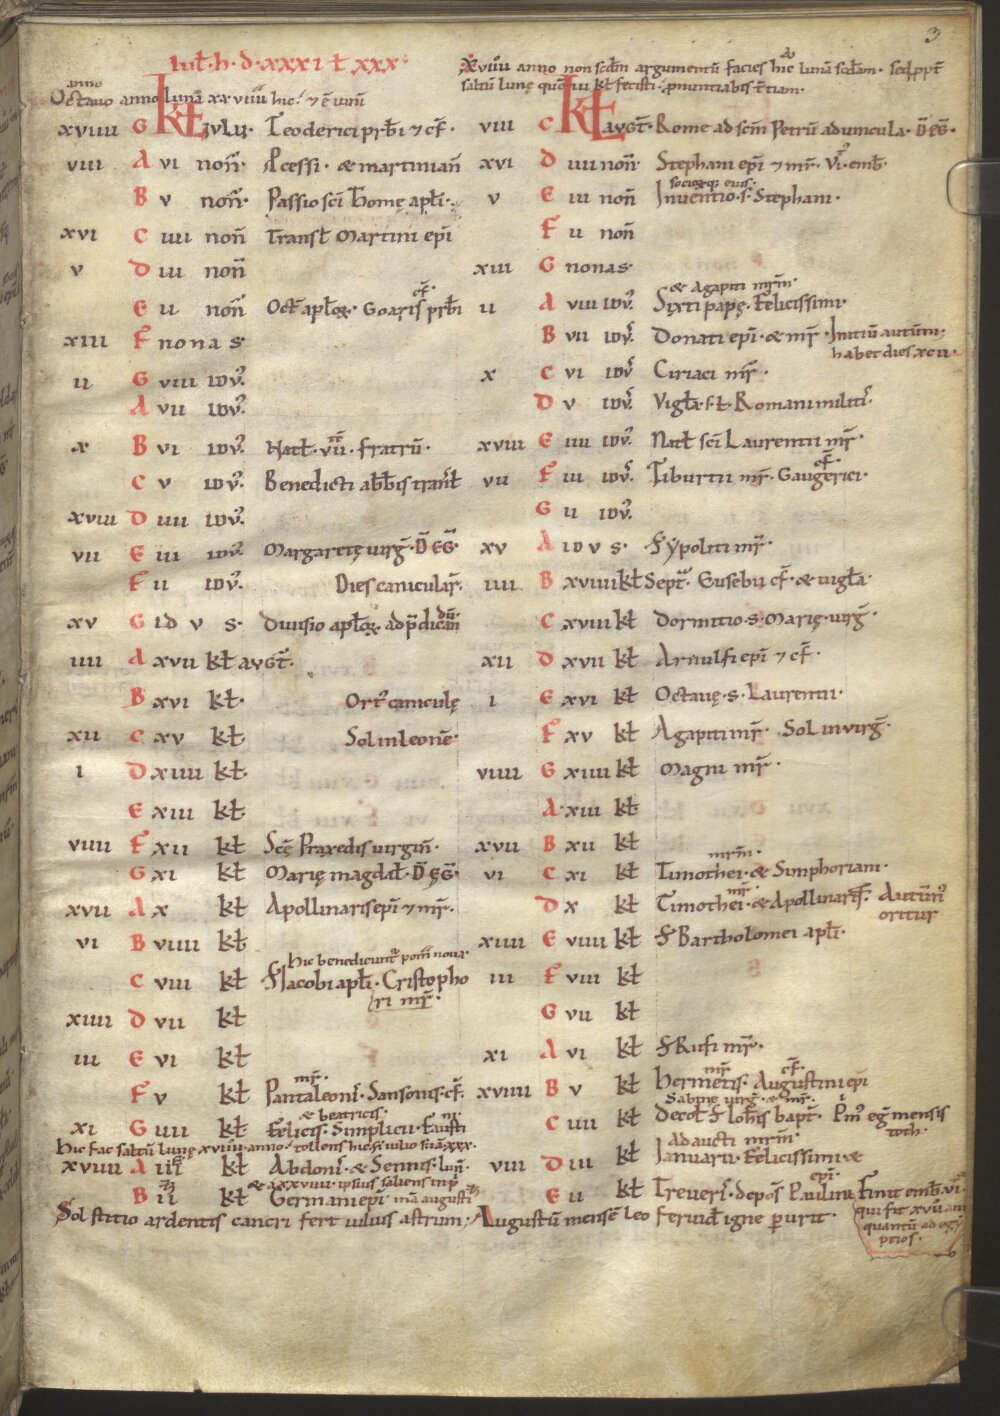 3
Iul̄ · h · d · xxxi ł xxx ·
anno
Octauo anno luna xx·viiii hic · ⁊ ē uiii
xviiii G KL IVLII · Teoderici prb̄i ⁊ cf̄ ·
viii A vi noñ · Pcessi · & martinian̄
B v noñ · Passio sc̄i Thomę apl̄i ·
xvi C iiii noñ Transł Martini ep̄i
v D iii noñ
cf̄ ·
E ii noñ Oct̄ apl̄oꝝ · Goaris prb̄i
xiii F nonas
ii G viii idꝰ
A vii idꝰ
x B vi idꝰ Natł · vii · fratrū ·
C v idꝰ Benedicti abb̄is transł
xviii D iiii idꝰ
vii E iii idꝰ Margaretę uirḡ · D̄ EḠ ·
F ii idꝰ Dies canicular̄ ·
xv G idvs · Diuisio apl̄oꝝ ad p̄dicandū
iiii A xvii kł avgt̄ ·
B xvi kł · Ortꝰ caniculę
xii C xv kł · Sol in leonē ·
i D xiiii kł ·
E xiii kł
viiii F xii kł Sc̄ę Praxedis uirgin̄ ·
G xi kł Marię magdał · D̄ ĘḠ ·
xvii A x kł Apollinaris ep̄i ⁊ mr̄ ·
vi B viiii kł
hic benedicuntꝰ pom̄ noua ·
C viii kł F Iacobi apl̄i · Cristopho
ri mr̄ ·
xiiii D vii kł
iii E vi kł
mr̄ ·
F v kł Pantaleoni · Sansonis · cf̄ ·
& beatricis ·
xi G iiii kł Felicis · Simplicii · Fausti
hic fac saltū lunę xviiii · anno · tollens hic si iulio lunā xxx ·
xviiii A iii kł Abdoni · & Sennis ·
B ii kł Germani ep̄i
Solstitio ardentis cancri fert iulius astrum ·
xviiii anno non scd̄m argumentū facies hic lunā scd̄am · sed ppt̄
saltū lunę quō iii kł fecisti · pnuntiabis t̄tiam ·
viii C KL AVGT̄ · Rome ad sc̄m Petrū ad uincula · D̄ EḠ ·
xvi D iiii noñ Stephani ep̄i ⁊ mr̄ · emb̄ ·
sociorꝗ eius ·
v E iii noñ Inuentio · s · Stephani ·
F ii noñ
xiii G nonas ·
& Agapiti mr̄m ·
ii A viii idꝰ Sixti papę · Felicissimi ·
B vii idꝰ Donati ep̄i · & mr̄ · Initiū autūmi
habet dies xcii ·
x C vi idꝰ Ciriaci mr̄ ·
D v idꝰ Vigła · s · ł · Romani militis ·
xviii E iiii idꝰ Natł sc̄i Laurentii mr̄ ·
cf̄ ·
vii F iii idꝰ Tiburtii mr̄ · Gaugerici ·
G ii idꝰ
xv A idvs · F Ypoliti mr̄ ·
iiii B xviiii kł Sept̄ · Eusebii cf̄ · & uigła ·
C xviii kł Dormitio · s · Marię · uirḡ ·
xii D xvii kł Arnulfi ep̄i ⁊ cf̄ ·
i E xvi kł Octauę · s · Laurentii ·
F xv kł Agapiti mr̄ · Sol in uirḡ ·
viiii G xiiii kł Magni mr̄ ·
A xiii kł
xvii B xii kł
mr̄m ·
vi C xi kł Timothei · & Simphoriani ·
mr̄ ·
D x kł Timothei · & Apollinaris · Autūnꝰ
oritur
xiiii E viiii kł F Bartholomei apl̄i ·
iii F viii kł
G vii kł
xi A vi kł F Rufi mr̄ ·
mr̄ cf̄ ·
xviiii B v kł Hermetis · Augustini ep̄i
Sabinę uirḡ · & mr̄ ·
C iiii kł Decoł F Ioh̄is bapt̄ · Pimꝰ eḡ mensis
toth ·
Adaucti mr̄m ·
viii D iii kł Ianuarii · Felicissimi &
ep̄i ·
E ii kł Treueri · depos̄ Paulini Finit emb̄
qui fit xvii an
quantū ad egy
ptios ·
Augustū mensē leo feruid̄ igne perurit ·